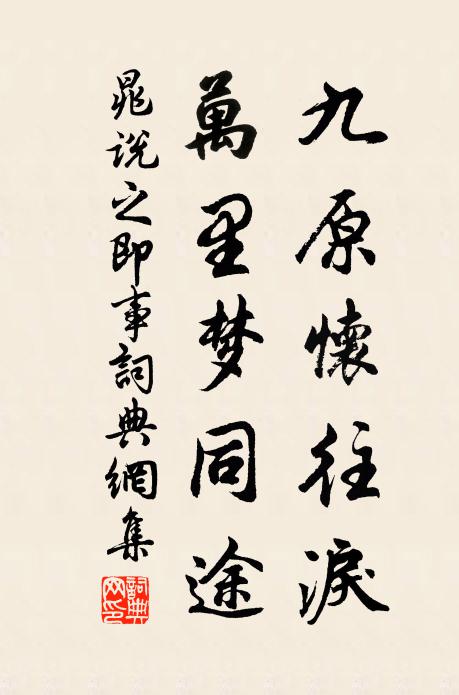 九原懷往淚
萬里梦同途
晁说之即事詞典網集
詞典網印